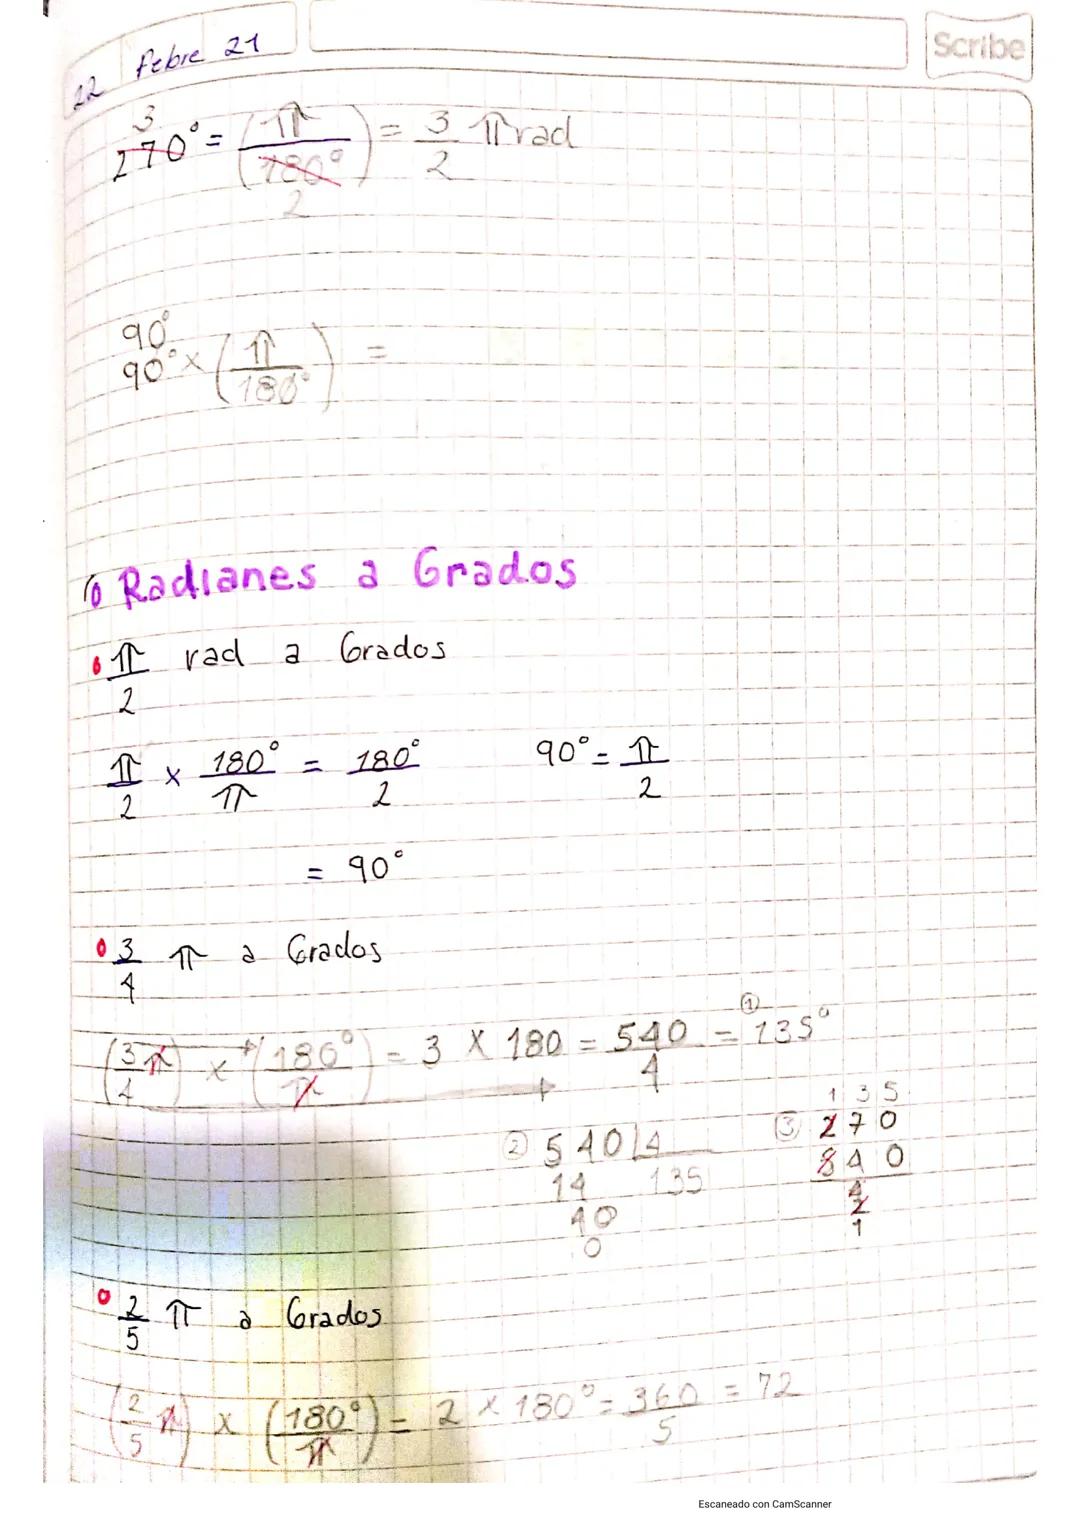 22 Febre 21
Scribe
3
270° = (π / 180°) = 3/2 π rad
2
90°
90° x (π / 180°) =
Radianes a Grados
π/2 rad a Grados
π/2 x 180°/π = 180°/2    90° = π/2
= 90°
3/4 π a Grados
(3/4 π) x (180°/π) = 3 x 180 = 540/4 = ① 135°
② 540 | 4
14 135
40
0
1 3 5
③ 2 7 0
8 4 0
4
2
1
2/5 π a Grados
(2/5 π) x (180°/π) = 2 x 180° = 360/5 = 72
Escaneado con CamScanner